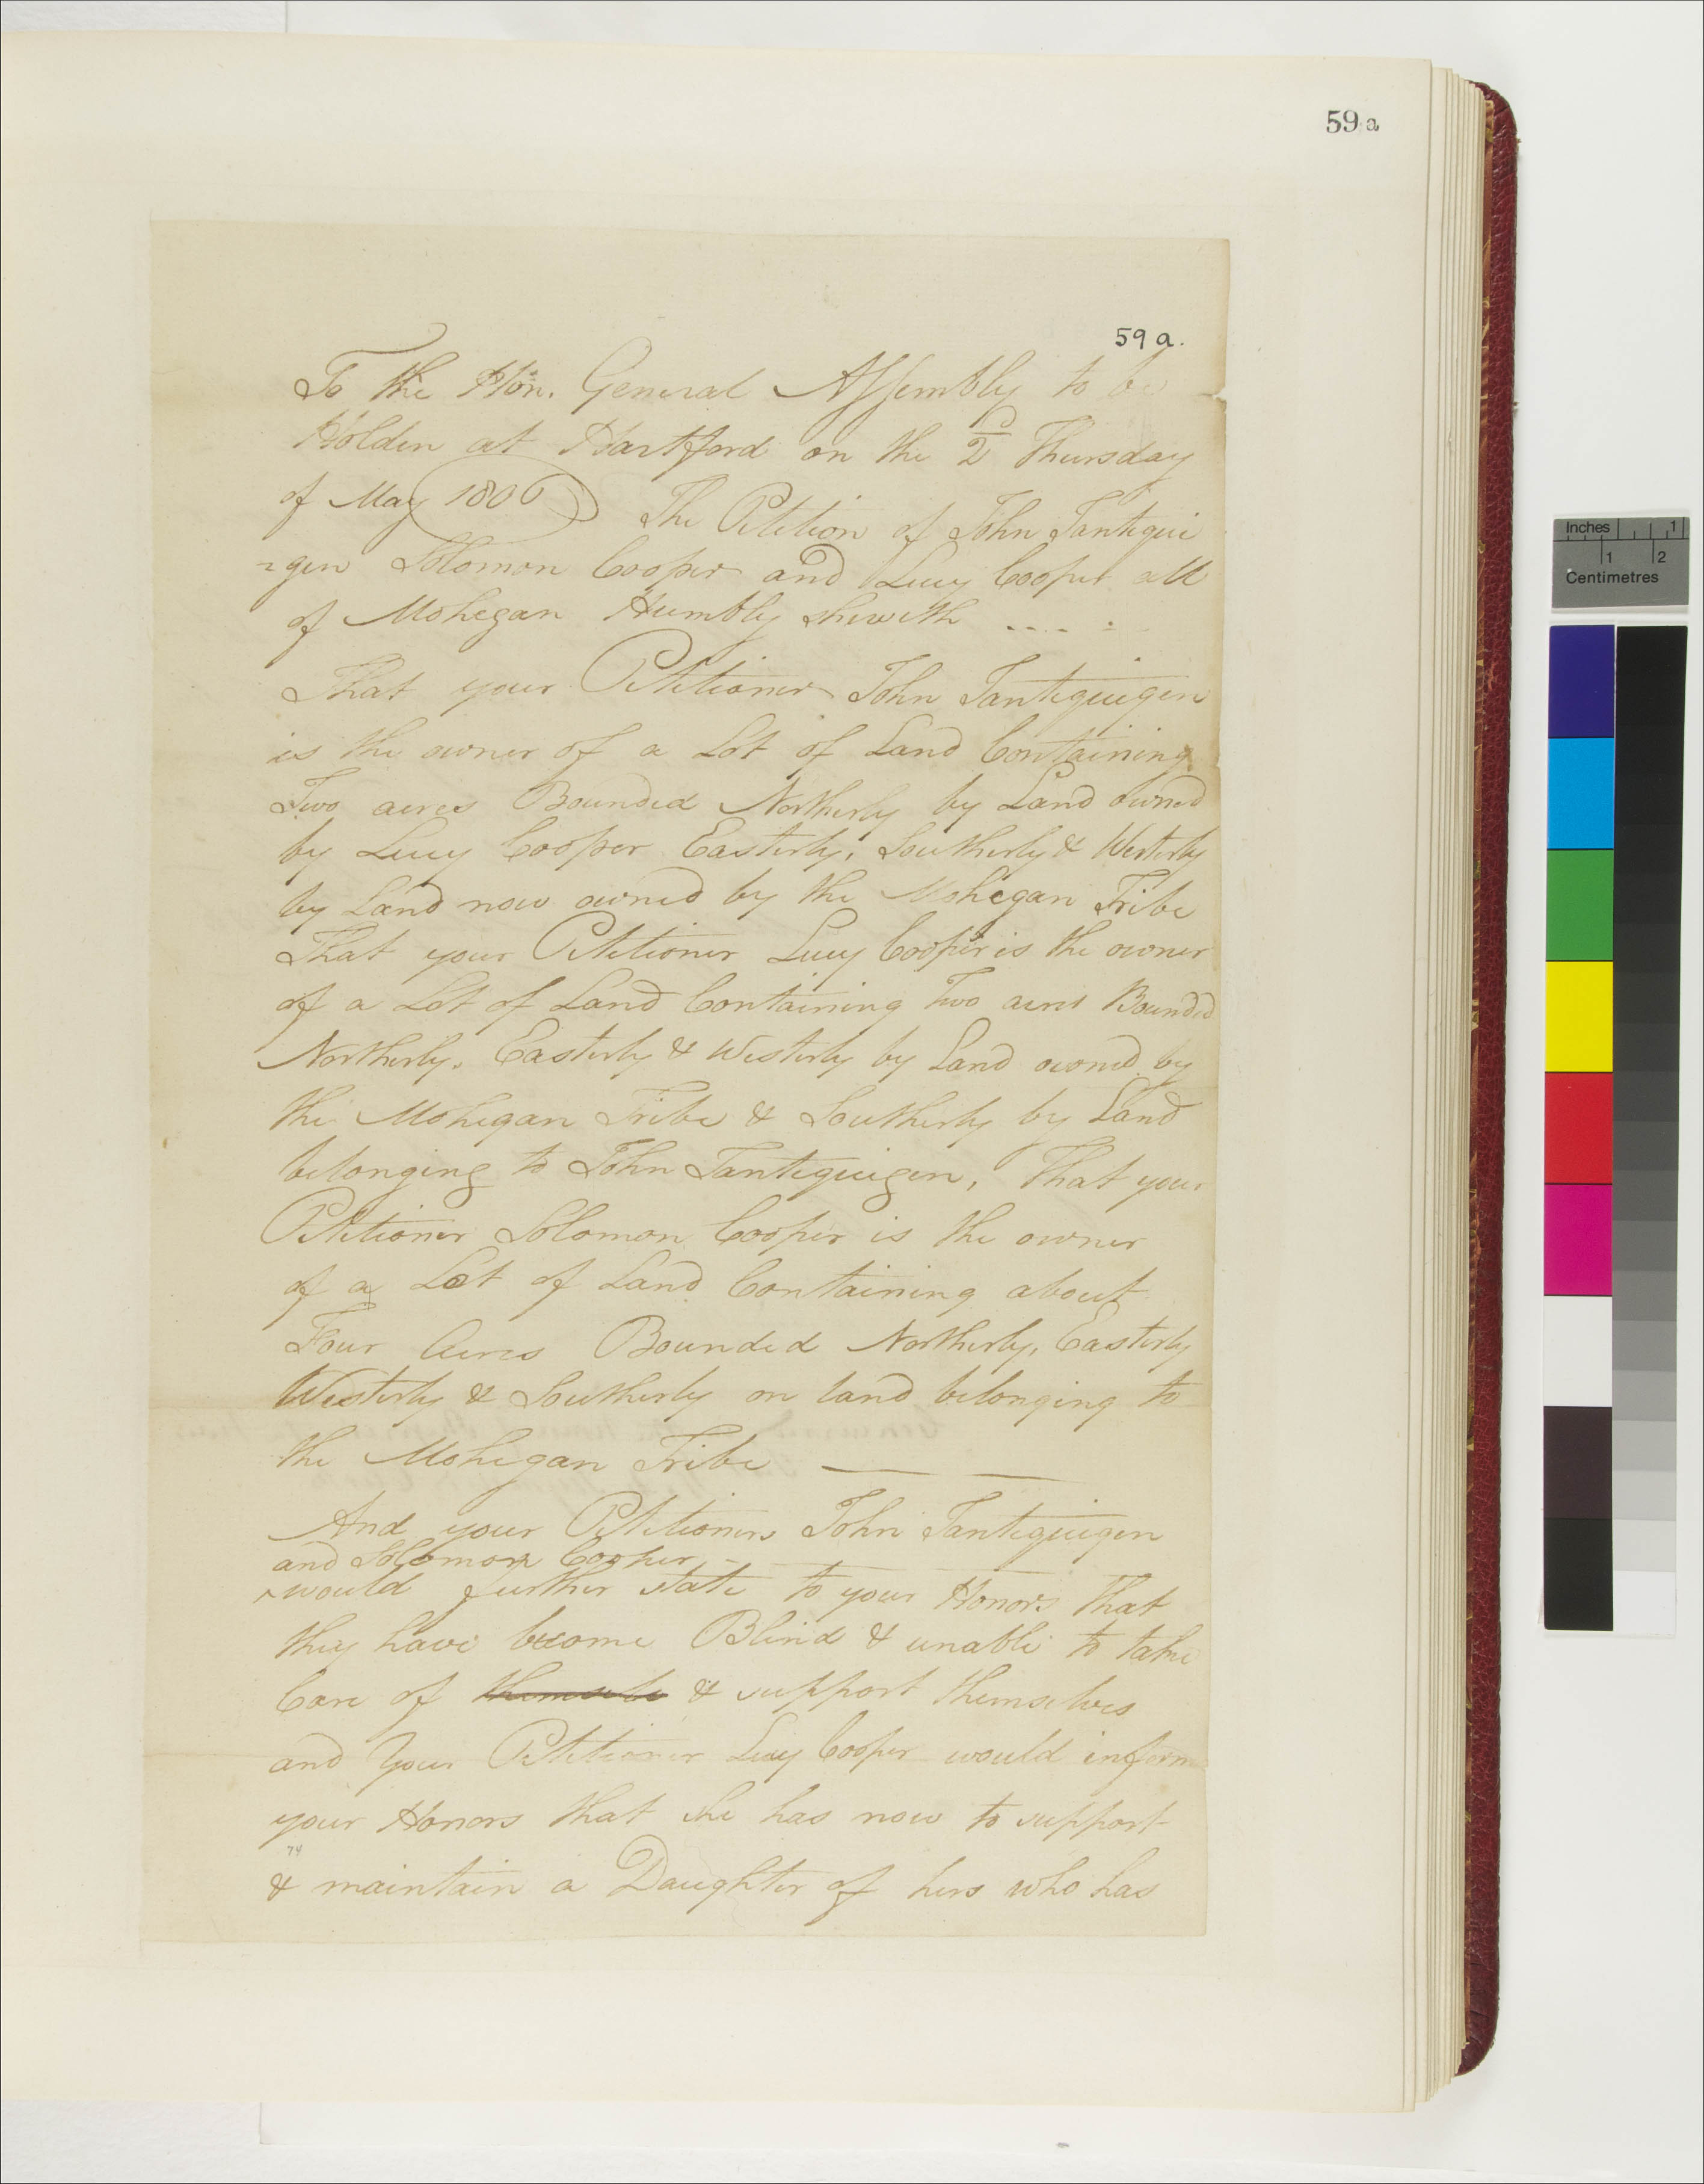 59 a
59 a.
To the Hon. General Assembly to be
Holden at Hartford on the 2d Thursday
of May 1806 The Petition of John Tantiqui
=gen Solomon Cooper and Lucy Cooper all
of Mohegan Humbly sheweth .... -
That your Petitioner John Tantiquigen
is the owner of a Lot of Land Containing
Two acres Bounded Northerly by Land owned
by Lucy Cooper Easterly, Southerly & Westerly
by Land now owned by the Mohegan Tribe
That your Petitioner Lucy Cooper is the owner
of a Lot of Land Containing Two acres Bounded
Northerly, Easterly & Westerly by Land owned by
the Mohegan Tribe & Southerly by Land
belonging to John Tantequigen, That your
Petitioner Solomon Cooper is the owner
of a Lot of Land Containing about
Four Acres Bounded Northerly, Easterly
Westerly & Southerly on land belonging to
the Mohegan Tribe — —
And your Petitioners John Tantequigen
and Solomon Cooper
^would further state to your Honors That
they have become Blind & unable to take
Care of themselve & support themselves
and Your Petitioner Lucy Cooper would inform
your Honors that she has now to support
74
& maintain a Daughter of hers who has
Inches 1
1 2
Centimetres